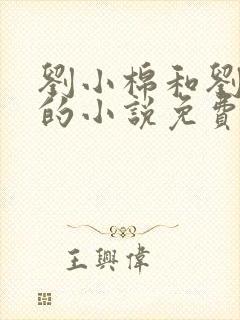 劉小棉和劉
的小說免費
王興偉